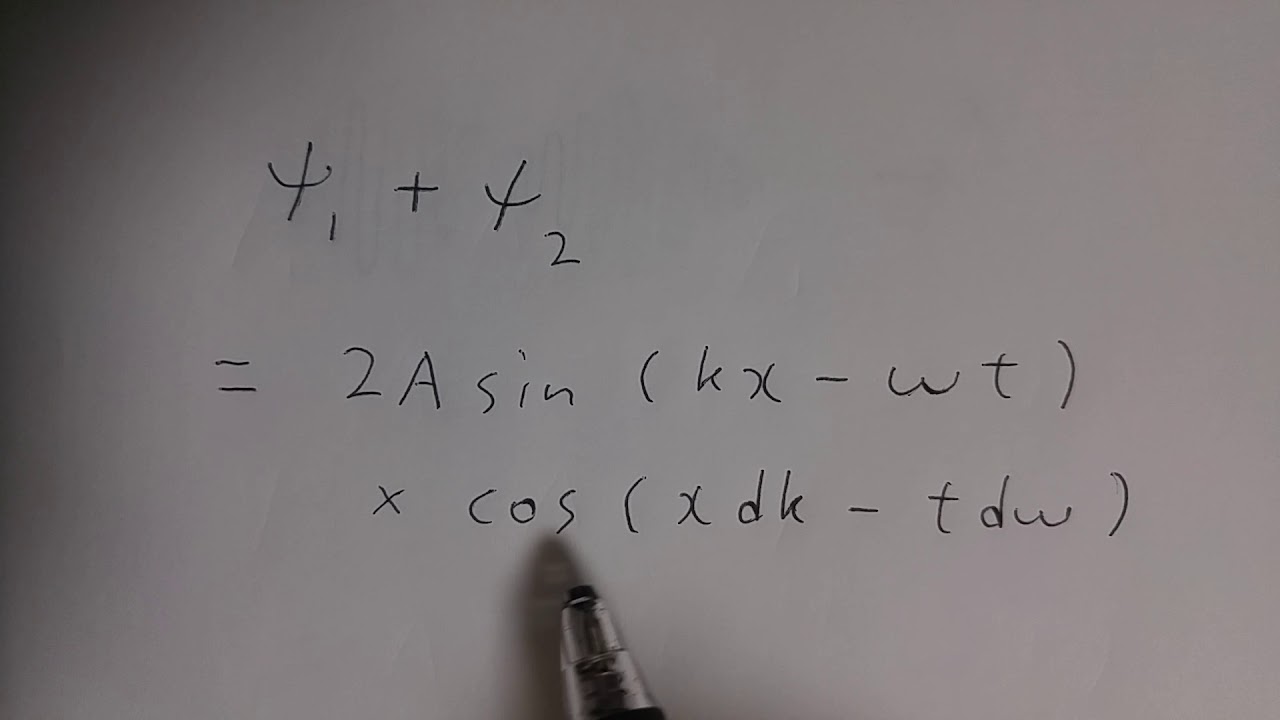 ψ₁ + ψ₂
= 2A sin (kx - wt)
× cos (x dk - t dw)